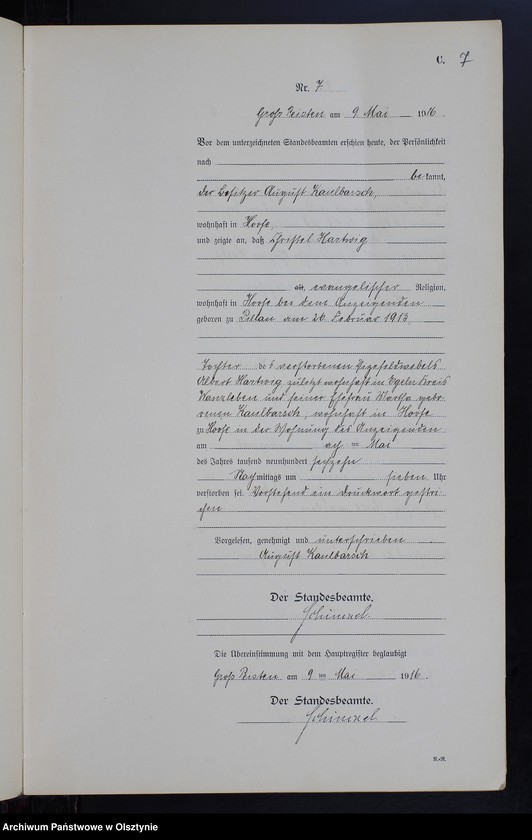 C. 7
Nr. 7
Groß Peisten am 9 Mai 1916.
Vor dem unterzeichneten Standesbeamten erschien heute, der Persönlichkeit
nach
be kannt,
der Besitzer August Kaulbarsch,
wohnhaft in Hoofe,
und zeigte an, daß Christel Hartwig
alt, evangelischer Religion,
wohnhaft in Hoofe bei dem Anzeigenden
geboren zu Pillau am 26 Februar 1913,
Tochter des verstorbenen Vizefeldwebels
Albert Hartwig zuletzt wohnhaft in Egeln Kreis
Wanzleben und seiner Ehefrau Martha gebo-
renen Kaulbarsch, wohnhaft in Hoofe
zu Hoofe in der Wohnung des Anzeigenden
am acht ten Mai
des Jahres tausend neunhundert sechzehn
Nachmittags um sieben Uhr
verstorben sei. Vorstehend ein Druckwort gestri-
chen
Vorgelesen, genehmigt und unterschrieben
August Kaulbarsch
Der Standesbeamte.
Schimkel
Die Übereinstimmung mit dem Hauptregister beglaubigt
Groß Peisten am 9 ten Mai 1916.
Der Standesbeamte.
Schimkel
Archiwum Państwowe w Olsztynie